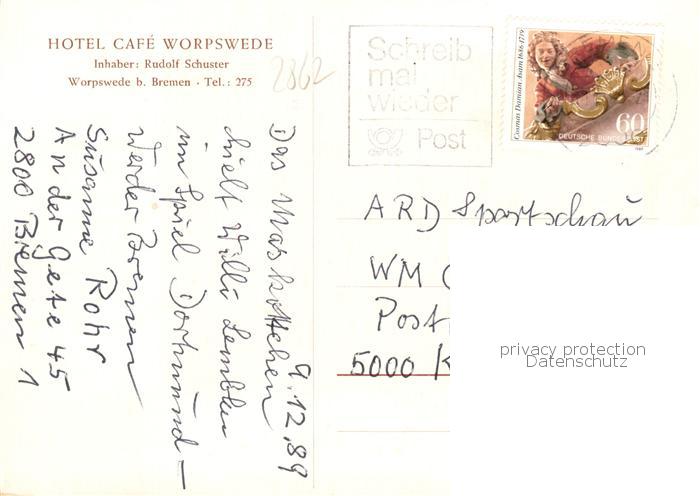 HOTEL CAFÉ WORPSWEDE
Inhaber: Rudolf Schuster
Worpswede b. Bremen · Tel.: 275
2862
Schreib
mal
wieder
Post
Cosmas Damian Asam 1686-1739
60
DEUTSCHE BUNDESPOST
9.12.89
Das Maskottchen
hielt Willi Lembke
im Spiel Dortmund –
Werder Bremen
Susanne Rohr
An der Gete 45
2800 Bremen 1
ARD Sportschau
WM
Post
5000 K
privacy protection
Datenschutz